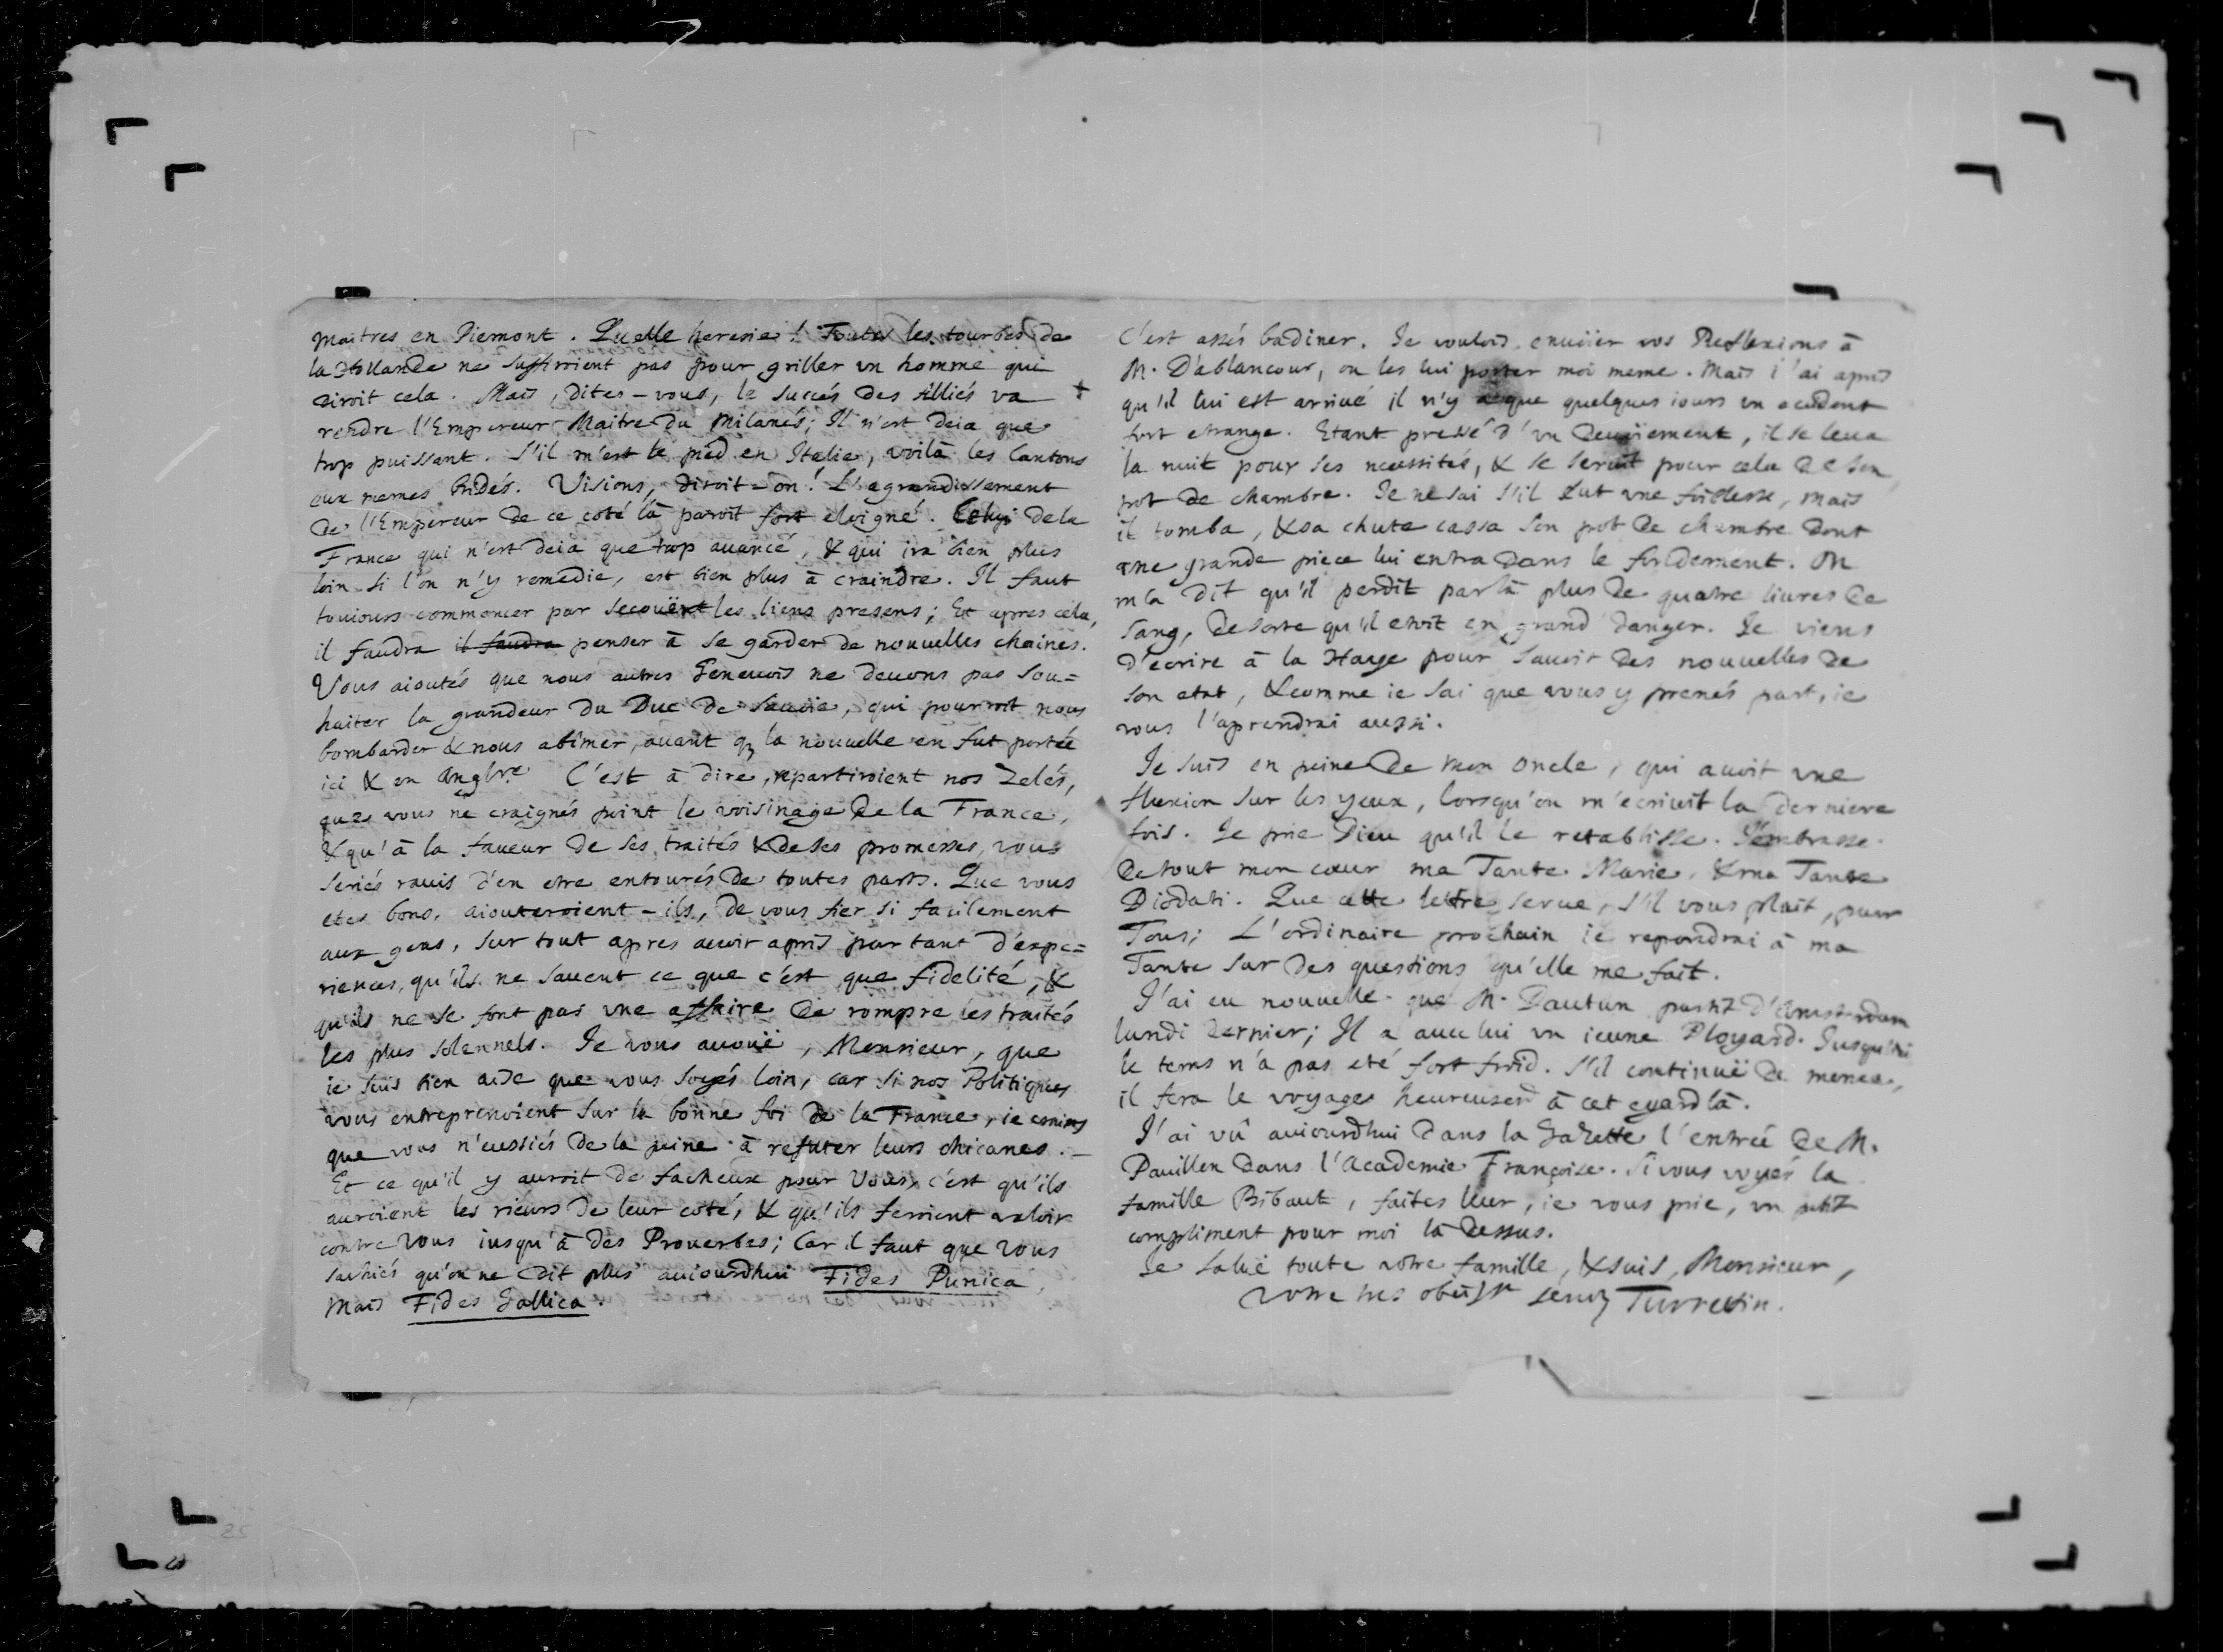 maitres en Piemont. Quelle heresie! Toutes les tourbes de
la Hollande ne suffiroient pas pour griller un homme qui
diroit cela. Mais, dites-vous, le succés des Alliés va
rendre l'Empereur Maitre du Milanés; Il n'est deia que
trop puissant. S'il met le pied en Italie, voilà les Cantons
eux memes bridés. Visions, diroit-on! L'agrandissement
de l'Empereur de ce coté là paroit fort eloigné. Celuy de la
France qui n'est deia que trop auancé, & qui ira bien plus
loin si l'on n'y remedie, est bien plus à craindre. Il faut
touiours commencer par secouër les liens presens; Et apres cela,
il faudra il faudra penser à se garder de nouuelles chaines.
Vous aioutés que nous autres Geneuois ne deuons pas sou=
haiter la grandeur du Duc de Sauoie, qui pourroit nous
bombarder & nous abîmer, auant q la nouuelle en fut portée
ici & en Anglre. C'est à dire, repartiroient nos Zelés,
que vous ne craignés point le voisinage de la France,
& qu'à la faueur de ses traités & de ses promesses, vous
seriés rauis d'en etre entourés de toutes parts. Que vous
etes bons, aiouteroient-ils, de vous fier si facilement
aux gens, sur tout apres auoir apris par tant d'expe=
riences, qu'ils ne sauent ce que c'est que fidelité, &
qu'ils ne se font pas une affaire de rompre les traités
les plus solennels. Je vous auouë, Monsieur, que
ie suis bien aise que vous soyés loin, car si nos Politiques
vous entreprenoient sur la bonne foi de la France, ie crains
que vous n'eussiés de la peine à refuter leurs chicanes.
Et ce qu'il y auroit de facheux pour vous, c'est qu'ils
auroient les rieurs de leur coté, & qu'ils feroient valoir
contre vous iusqu'à des Prouerbes; Car il faut que vous
sachiés qu'on ne dit plus auiourdhui Fides Punica,
mais Fides Gallica.
C'est assés badiner. Je voulois enuoier vos Reflexions à
M. D'ablancour, ou les lui porter moi meme. Mais i'ai apris
qu'il lui est arriué il n'y a que quelques iours un accident
fort etrange. Etant pressé d'un deuoiement, il se leua
la nuit pour ses necessités, & se seruit pour cela de son
pot de chambre. Je ne sai s'il eut une foiblesse, mais
il tomba, & sa chute cassa son pot de chambre dont
une grande piece lui entra dans le fondement. On
m'a dit qu'il perdit par là plus de quatre liures de
sang, de sorte qu'il etoit en grand danger. Je viens
d'ecrire à la Haye pour sauoir des nouuelles de
son etat, & comme ie sai que vous y prenés part, ie
vous l'aprendrai aussi.
Je suis en peine de mon oncle, qui auoit une
fluxion sur les yeux, lorsqu'on m'ecriuit la derniere
fois. Je prie Dieu qu'il le retablisse. J'embrasse
de tout mon cœur ma Tante Marie, & ma Tante
Diodati. Que cette lettre serue, s'il vous plait, pour
Tous; L'ordinaire prochain ie repondrai à ma
Tante sur des questions qu'elle me fait.
J'ai eu nouuelle que M. Dautun partit d'Amsterdam
lundi dernier; Il a auec lui un ieune Ployard. Jusqu'ici
le tems n'a pas eté fort froid. S'il continuë de meme,
il fera le voyage heureusemt à cet egard là.
J'ai vû auiourdhui dans la Gazette l'entrée de M.
Pauillon dans l'Academie Françoise. Si vous voyés la
famille Bibaut, faites leur, ie vous prie, un petit
compliment pour moi là dessus.
Je saluë toute votre famille, & suis, Monsieur,
Votre tres obeisst serur Turretin.